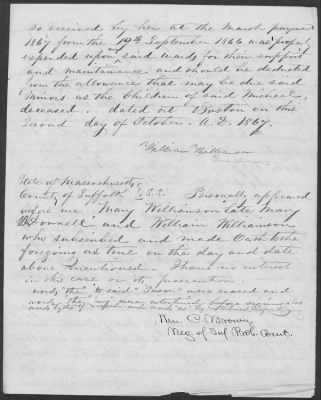 so received by her at the March payment
1867 from the 14th September 1866 was properly
expended upon said wards for their support
and maintenance and should be deducted
from the allowance that may be due said
minors as the Children of said Michael
deceased. dated at Boston on this
Second day of October A.D. 1867.
William Williamson
State of Massachusetts
County of Suffolk } S.S. Personally appeared
before me Mary Williamson late Mary
O'Donnell and William Williamson
who subscribed and made Oath to the
foregoing as true on the day and date
above mentioned. I have no interest
in this case or its prosecution.
words "the" "to said" were erased and
words they may before signing also
Wm. C. Brown
Reg. of Suf Prob. Court.